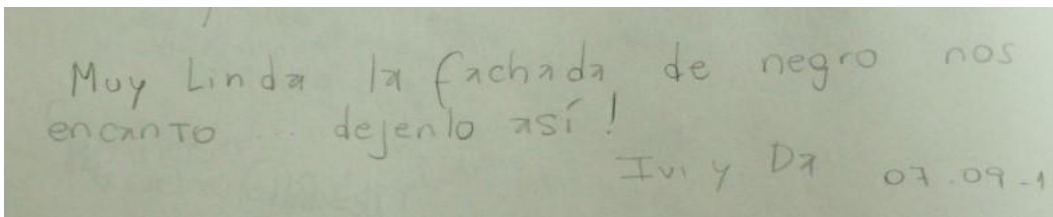 Muy Linda la fachada de negro nos
encanto ... dejenlo así!
Ivi y Da 07.09.1